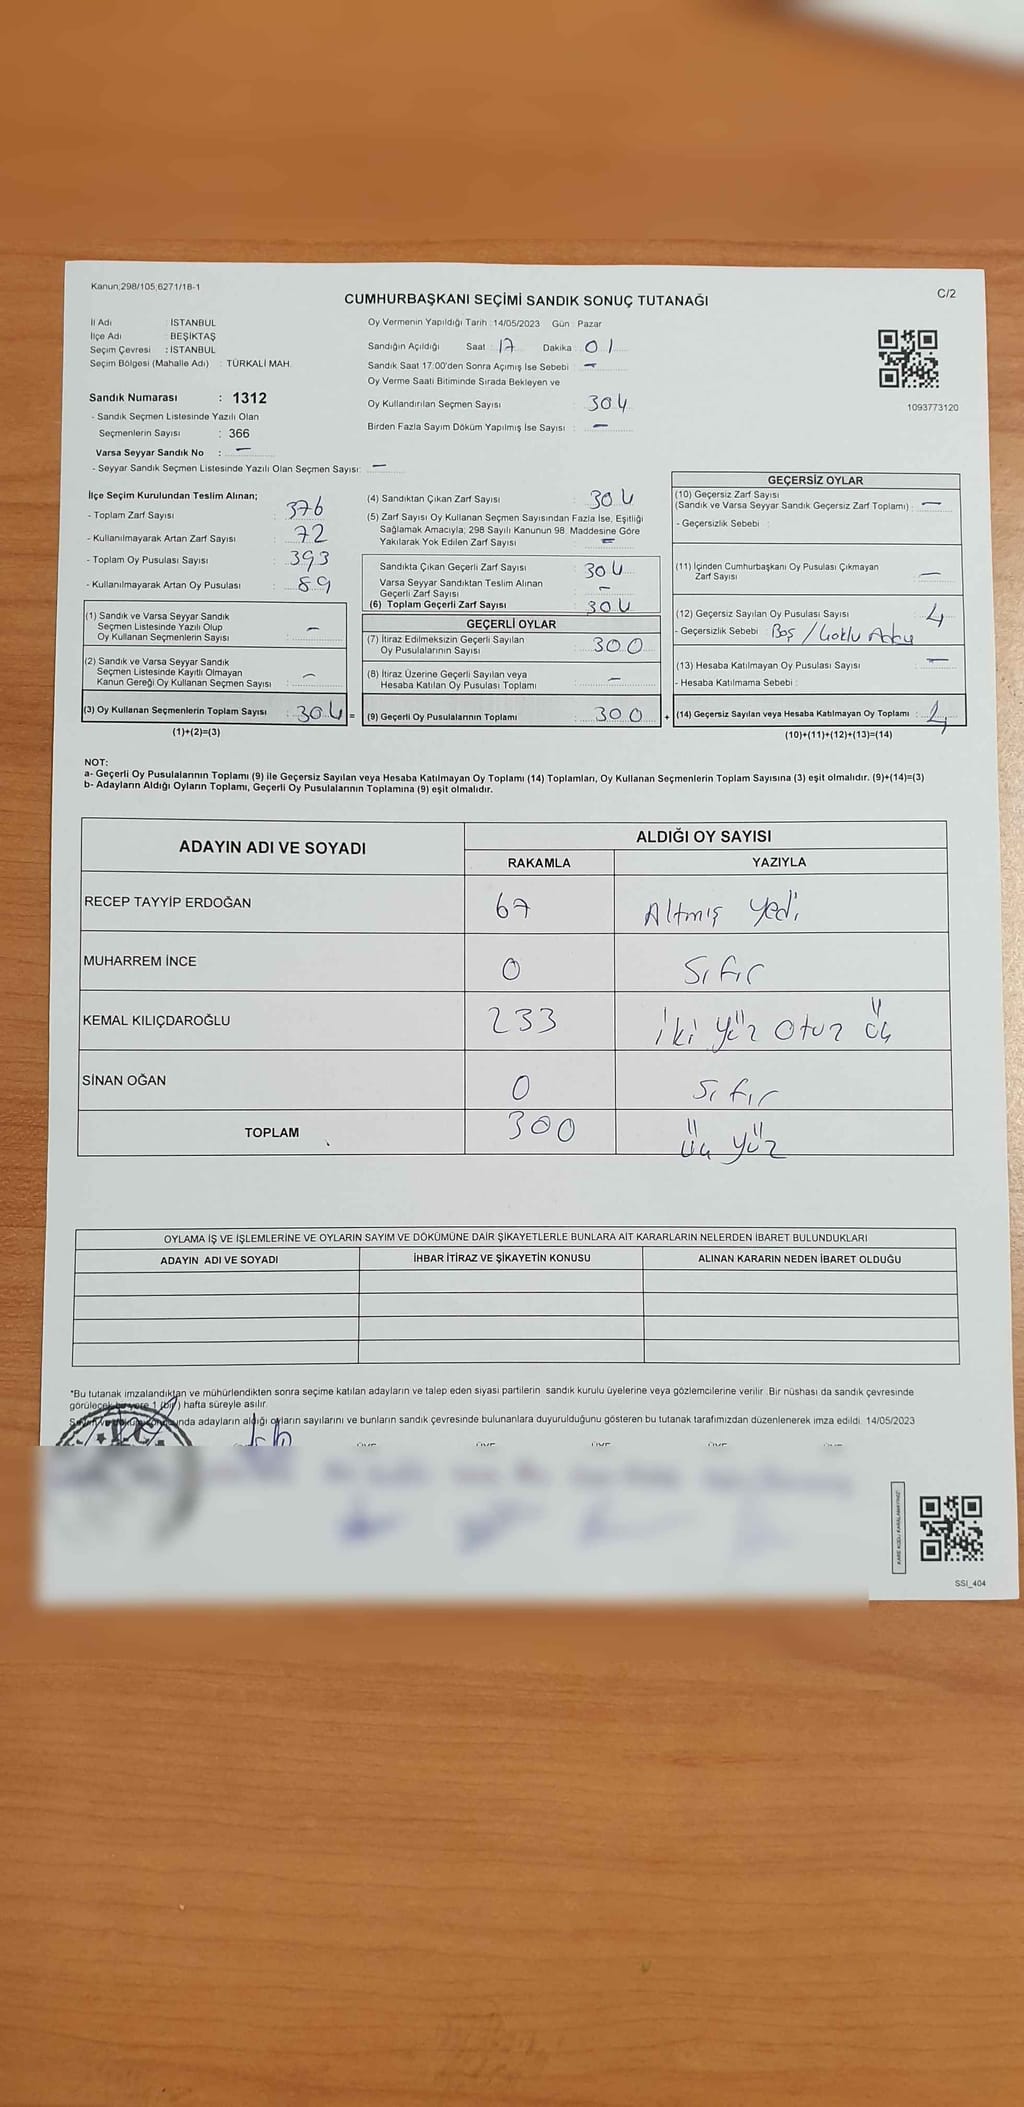 Kanun;298/105;6271/18-1
C/2
CUMHURBAŞKANI SEÇİMİ SANDIK SONUÇ TUTANAĞI
İl Adı : İSTANBUL
İlçe Adı : BEŞİKTAŞ
Seçim Çevresi : İSTANBUL
Seçim Bölgesi (Mahalle Adı) : TÜRKALİ MAH.
Sandık Numarası : 1312
- Sandık Seçmen Listesinde Yazılı Olan
Seçmenlerin Sayısı : 366
Varsa Seyyar Sandık No : -
- Seyyar Sandık Seçmen Listesinde Yazılı Olan Seçmen Sayısı: -
Oy Vermenin Yapıldığı Tarih :14/05/2023 Gün : Pazar
Sandığın Açıldığı Saat : 17 Dakika : 01
Sandık Saat 17:00'den Sonra Açımış İse Sebebi : -
Oy Verme Saati Bitiminde Sırada Bekleyen ve
Oy Kullandırılan Seçmen Sayısı : 304
Birden Fazla Sayım Döküm Yapılmış İse Sayısı : -
1093773120
İlçe Seçim Kurulundan Teslim Alınan;
- Toplam Zarf Sayısı : 376
- Kullanılmayarak Artan Zarf Sayısı : 72
- Toplam Oy Pusulası Sayısı : 393
- Kullanılmayarak Artan Oy Pusulası : 89
(1) Sandık ve Varsa Seyyar Sandık
Seçmen Listesinde Yazılı Olup
Oy Kullanan Seçmenlerin Sayısı : -
(2) Sandık ve Varsa Seyyar Sandık
Seçmen Listesinde Kayıtlı Olmayan
Kanun Gereği Oy Kullanan Seçmen Sayısı : -
(3) Oy Kullanan Seçmenlerin Toplam Sayısı : 304 =
(1)+(2)=(3)
(4) Sandıktan Çıkan Zarf Sayısı : 304
(5) Zarf Sayısı Oy Kullanan Seçmen Sayısından Fazla İse, Eşitliği
Sağlamak Amacıyla; 298 Sayılı Kanunun 98. Maddesine Göre
Yakılarak Yok Edilen Zarf Sayısı : -
Sandıkta Çıkan Geçerli Zarf Sayısı : 304
Varsa Seyyar Sandıktan Teslim Alınan
Geçerli Zarf Sayısı : -
(6) Toplam Geçerli Zarf Sayısı : 304
GEÇERLİ OYLAR
(7) İtiraz Edilmeksizin Geçerli Sayılan
Oy Pusulalarının Sayısı : 300
(8) İtiraz Üzerine Geçerli Sayılan veya
Hesaba Katılan Oy Pusulası Toplamı : -
(9) Geçerli Oy Pusulalarının Toplamı : 300 +
GEÇERSİZ OYLAR
(10) Geçersiz Zarf Sayısı
(Sandık ve Varsa Seyyar Sandık Geçersiz Zarf Toplamı) : -
- Geçersizlik Sebebi :
(11) İçinden Cumhurbaşkanı Oy Pusulası Çıkmayan
Zarf Sayısı : -
(12) Geçersiz Sayılan Oy Pusulası Sayısı : 4
- Geçersizlik Sebebi : Boş / Çoklu Aday
(13) Hesaba Katılmayan Oy Pusulası Sayısı : -
- Hesaba Katılmama Sebebi :
(14) Geçersiz Sayılan veya Hesaba Katılmayan Oy Toplamı : 4
(10)+(11)+(12)+(13)=(14)
NOT:
a- Geçerli Oy Pusulalarının Toplamı (9) ile Geçersiz Sayılan veya Hesaba Katılmayan Oy Toplamı (14) Toplamları, Oy Kullanan Seçmenlerin Toplam Sayısına (3) eşit olmalıdır. (9)+(14)=(3)
b- Adayların Aldığı Oyların Toplamı, Geçerli Oy Pusulalarının Toplamına (9) eşit olmalıdır.
ADAYIN ADI VE SOYADI
ALDIĞI OY SAYISI
RAKAMLA YAZIYLA
RECEP TAYYİP ERDOĞAN 67 Altmış yedi
MUHARREM İNCE 0 Sıfır
KEMAL KILIÇDAROĞLU 233 iki yüz otuz üç
SİNAN OĞAN 0 Sıfır
TOPLAM 300 üç yüz
OYLAMA İŞ VE İŞLEMLERİNE VE OYLARIN SAYIM VE DÖKÜMÜNE DAİR ŞİKAYETLERLE BUNLARA AİT KARARLARIN NELERDEN İBARET BULUNDUKLARI
ADAYIN ADI VE SOYADI İHBAR İTİRAZ VE ŞİKAYETİN KONUSU ALINAN KARARIN NEDEN İBARET OLDUĞU
*Bu tutanak imzalandıktan ve mühürlendikten sonra seçime katılan adayların ve talep eden siyasi partilerin sandık kurulu üyelerine veya gözlemcilerine verilir. Bir nüshası da sandık çevresinde
görülecek bir yere 1 (bir) hafta süreyle asılır.
adayların aldığı oyların sayılarını ve bunların sandık çevresinde bulunanlara duyurulduğunu gösteren bu tutanak tarafımızdan düzenlenerek imza edildi. 14/05/2023
SSI_404